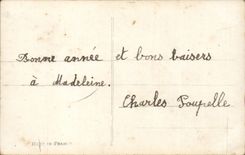 Bonne année et bons baisers
à Madeleine.
Charles Poupelle